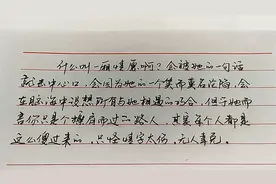 什么叫一厢情愿啊？会被她的一句话
就击中心口，会因为她的一个笑而莫名沦陷，会
在脑海中设想所有与她相遇的场合，但于她而
言你只是个擦肩而过的路人，其实每个人都是
这么傻过来的，只怪情字太伤，无人幸免。